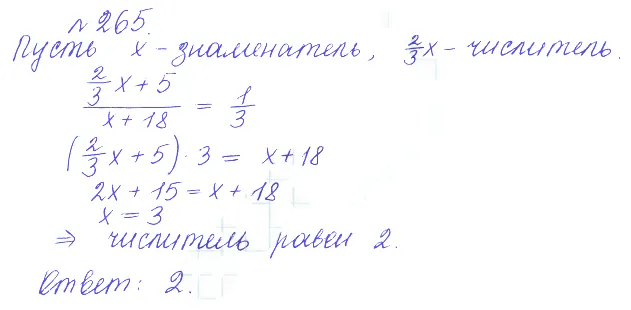 № 265.
Пусть x - знаменатель, 2/3x - числитель.
(2/3x + 5)/(x + 18) = 1/3
(2/3x + 5) · 3 = x + 18
2x + 15 = x + 18
x = 3
⇒ числитель равен 2.
Ответ: 2.